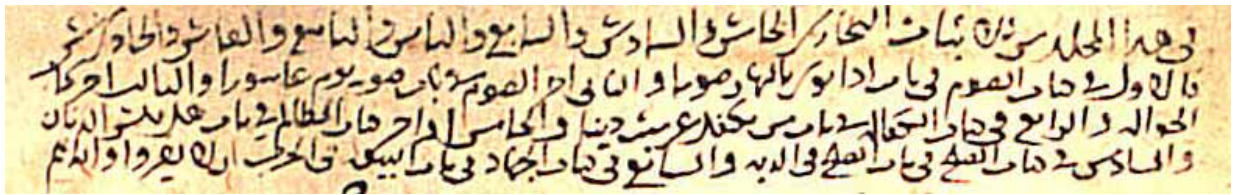 في هذا المجلد من ثلاثيات البخاري الخامس والسادس والسابع والثامن والتاسع والعاشر والحادي عشر
فالاول في كتاب الصوم في باب اذا نوى بالنهار صوما والثاني اخر الصوم في باب صوم يوم عاشورا والثالث اخر
الحوالة والرابع في كتاب الكفالة في باب من تكفل عن ميت دينا والخامس اواخر كتاب المظالم في باب هل تكسر الدنان
والسادس في كتاب الصلح في باب الصلح في الدية والسابع في كتاب الجهاد في باب البيعة في الحرب ان لا يفروا والله اعلم